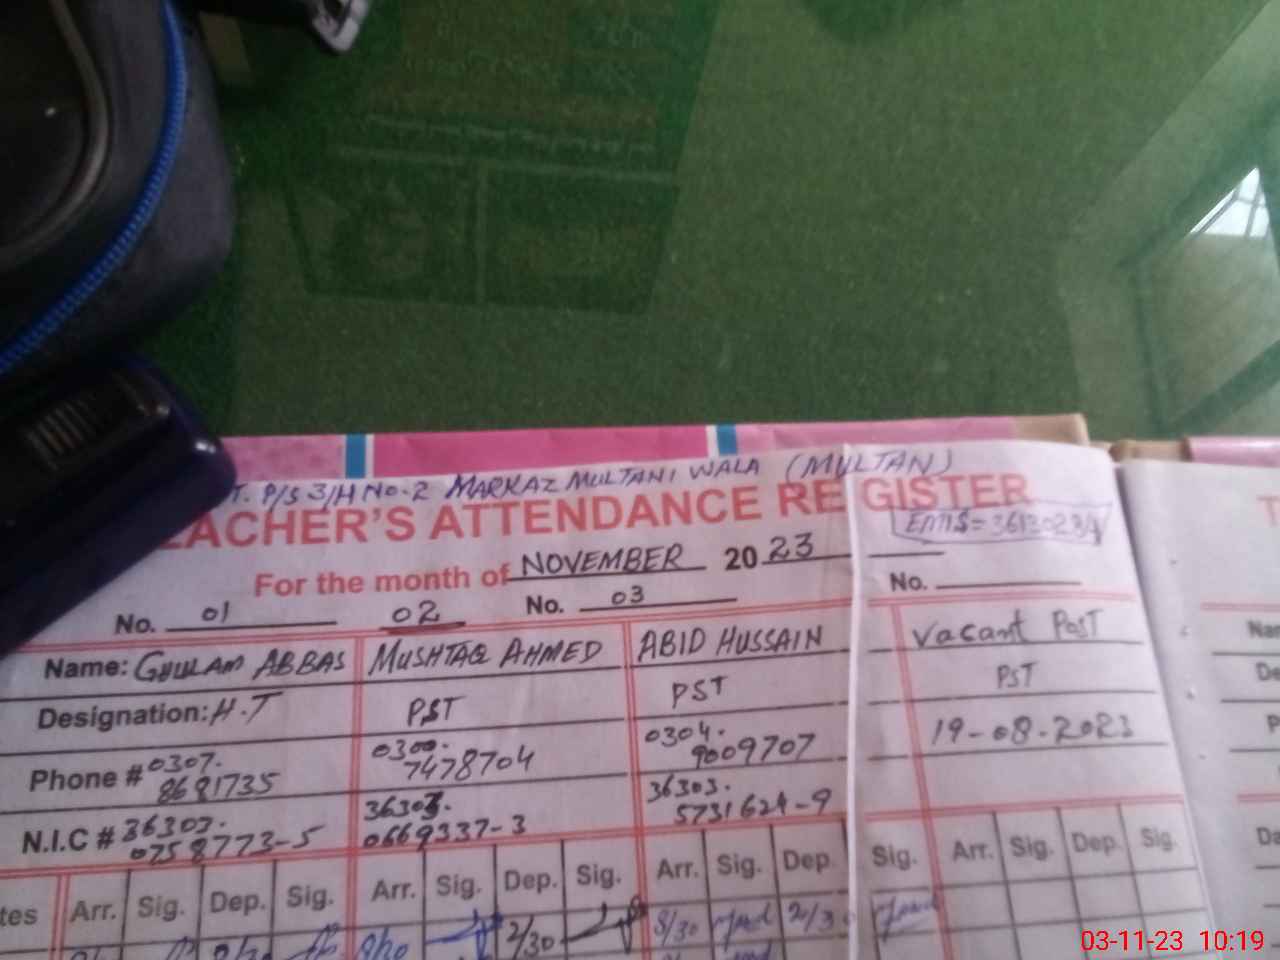 T. P/S 3/H NO-2 MARKAZ MULTANI WALA (MULTAN)
TEACHER'S ATTENDANCE REGISTER
EMIS= 36130234
For the month of NOVEMBER 2023
No. 01 02 No. 03 No.
Name: GHULAM ABBAS MUSHTAQ AHMED ABID HUSSAIN Vacant PosT
Designation: H.T PST PST PST
Phone # 0307. 0300. 0304. 19-08-2023
8681735 7478704 9009707
N.I.C # 36303. 36303. 36303.
0758773-5 0669337-3 5731624-9
tes Arr. Sig. Dep. Sig. Arr. Sig. Dep. Sig. Arr. Sig. Dep. Sig. Arr. Sig. Dep. Sig.
2/30 8/30 2/30
T
Na
De
P
Da
03-11-23 10:19